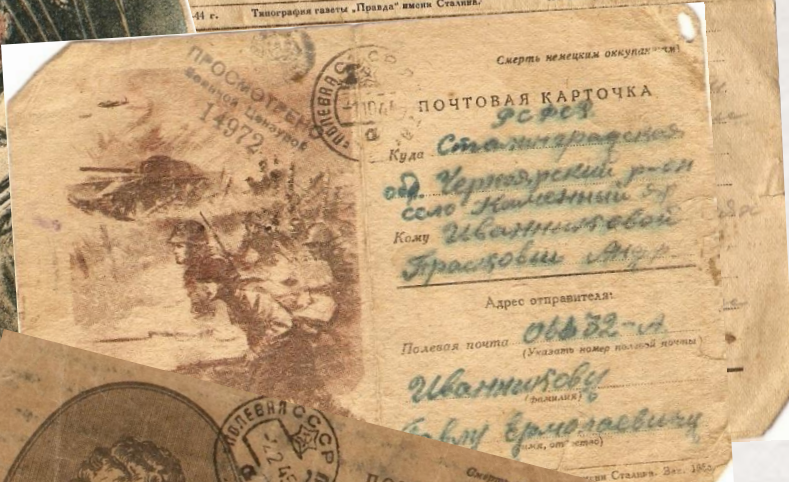 44 г. Типография газеты „Правда" имени Сталина.
Смерть немецким оккупантам!
ПРОСМОТРЕНО
Военной Цензурой
14972
ПОЛЕВАЯ СССР
ПОЧТОВАЯ КАРТОЧКА
РСФСР
Куда Сталинградская
обл. Черноярский р-он
село Каменный Яр
Кому Иванниковой
Прасковьи Андр
Адрес отправителя:
Полевая почта 32-А
(Указать номер полевой почты)
Иванникову
(фамилия)
Павлу Ермолаевичу
(имя, отчество)
ПОЛЕВАЯ СССР
Смерть
имени Сталина. Зак.